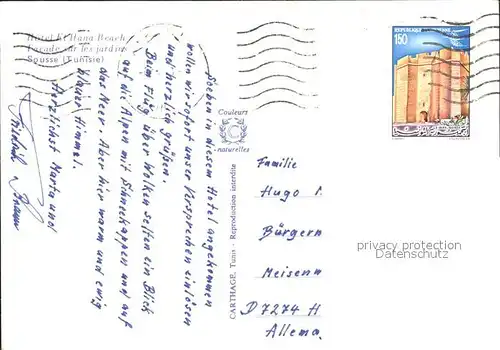 Hotel El Hana Beach
Façade sur les jardins
Sousse (Tunisie)
Soeben in diesem Hotel angekommen
wollen wir sofort unser Versprechen einlösen
und herzlich grüßen.
Beim Flug über Wolken selten ein Blick
auf die Alpen mit Schneekappen und auf
das Meer. Aber hier warm und ewig
blauer Himmel.
Herzlichst Marta und
Couleurs
naturelles
CARTHAGE, Tunis - Reproduction interdite
REPUBLIQUE
150
Familie
Hugo
Bürgerm
Meisenw
D 7274 H
Allema
privacy protection
Datenschutz